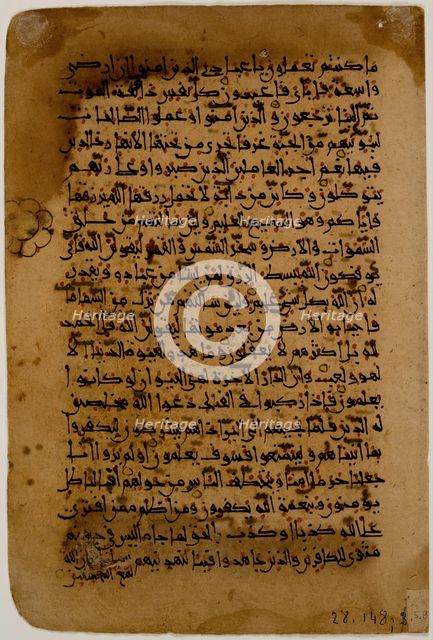 ما كنتم تعملون يا عبادي الذين امنوا ان ارضي
واسعة فاياي فاعبدون كل نفس ذائقة الموت
ثم الينا ترجعون والذين امنوا وعملوا الصالحات
لنبوئنهم من الجنة غرفا تجري من تحتها الانهار خالدين
فيها نعم اجر العاملين الذين صبروا وعلى ربهم
يتوكلون وكاين من دابة لا تحمل رزقها الله يرزقها
واياكم وهو السميع العليم ولئن سالتهم من خلق
السموات والارض وسخر الشمس والقمر ليقولن الله فانى
يوفكون الله يبسط الرزق لمن يشا من عباده ويقدر
له ان الله بكل شي عليم ولئن سالتهم من نزل من السما ما
فاحيا به الارض من بعد موتها ليقولن الله قل الحمد
لله بل اكثرهم لا يعقلون وما هذه الحيوة الدنيا الا
لهو ولعب وان الدار الاخرة لهي الحيوان لو كانوا
يعلمون فاذا ركبوا في الفلك دعوا الله مخلصين
له الدين فلما نجيهم الى البر اذا هم يشركون ليكفروا
بما اتيناهم وليتمتعوا فسوف يعلمون اولم يروا انا
جعلنا حرما امنا ويتخطف الناس من حولهم افبالباطل
يومنون وبنعمة الله يكفرون ومن اظلم ممن افترى
على الله كذبا او كذب بالحق لما جاه اليس في جهنم
مثوى للكافرين والذين جاهدوا فينا لنهدينهم سبلنا وان الله
لمع المحسنين
28.148.3
Heritage Heritage Heritage
Heritage Heritage
Heritage Heritage Heritage
©